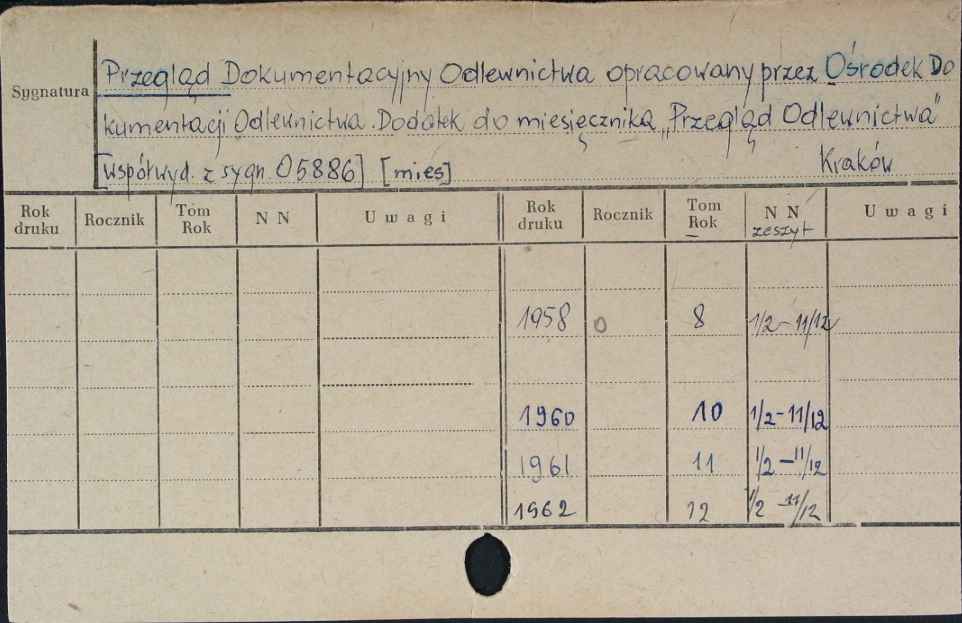 Sygnatura
Przegląd Dokumentacyjny Odlewnictwa opracowany przez Ośrodek Do
kumentacji Odlewnictwa. Dodatek do miesięcznika „Przegląd Odlewnictwa"
[współwyd. z sygn. 05886] [mies] Kraków
Rok druku Rocznik Tom Rok N N Uwagi Rok druku Rocznik Tom Rok N N zeszyt Uwagi
1958 0 8 1/2 - 11/12
1960 10 1/2 - 11/12
1961 11 1/2 - 11/12
1962 12 1/2 - 11/12